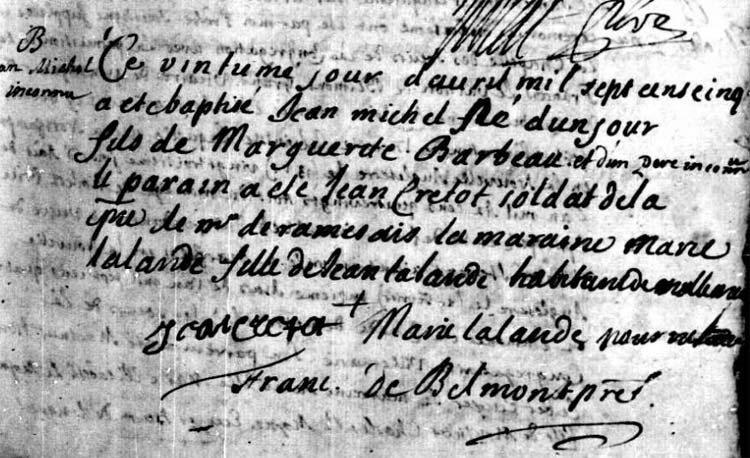 B
an Michel
inconnu
Ce vintume jour d'avril mil sept cens cinq
a ete baptisé Jean michel né d'un jour
fils de Marguerite Barbeau et d'un pere inconnu
le parain a eté Jean Cretot soldat de la
pie de mr de ramesais la maraine marie
lalande fille de Jean lalande habitant de
Marie lalande pour
Franc. de Belmont pret.